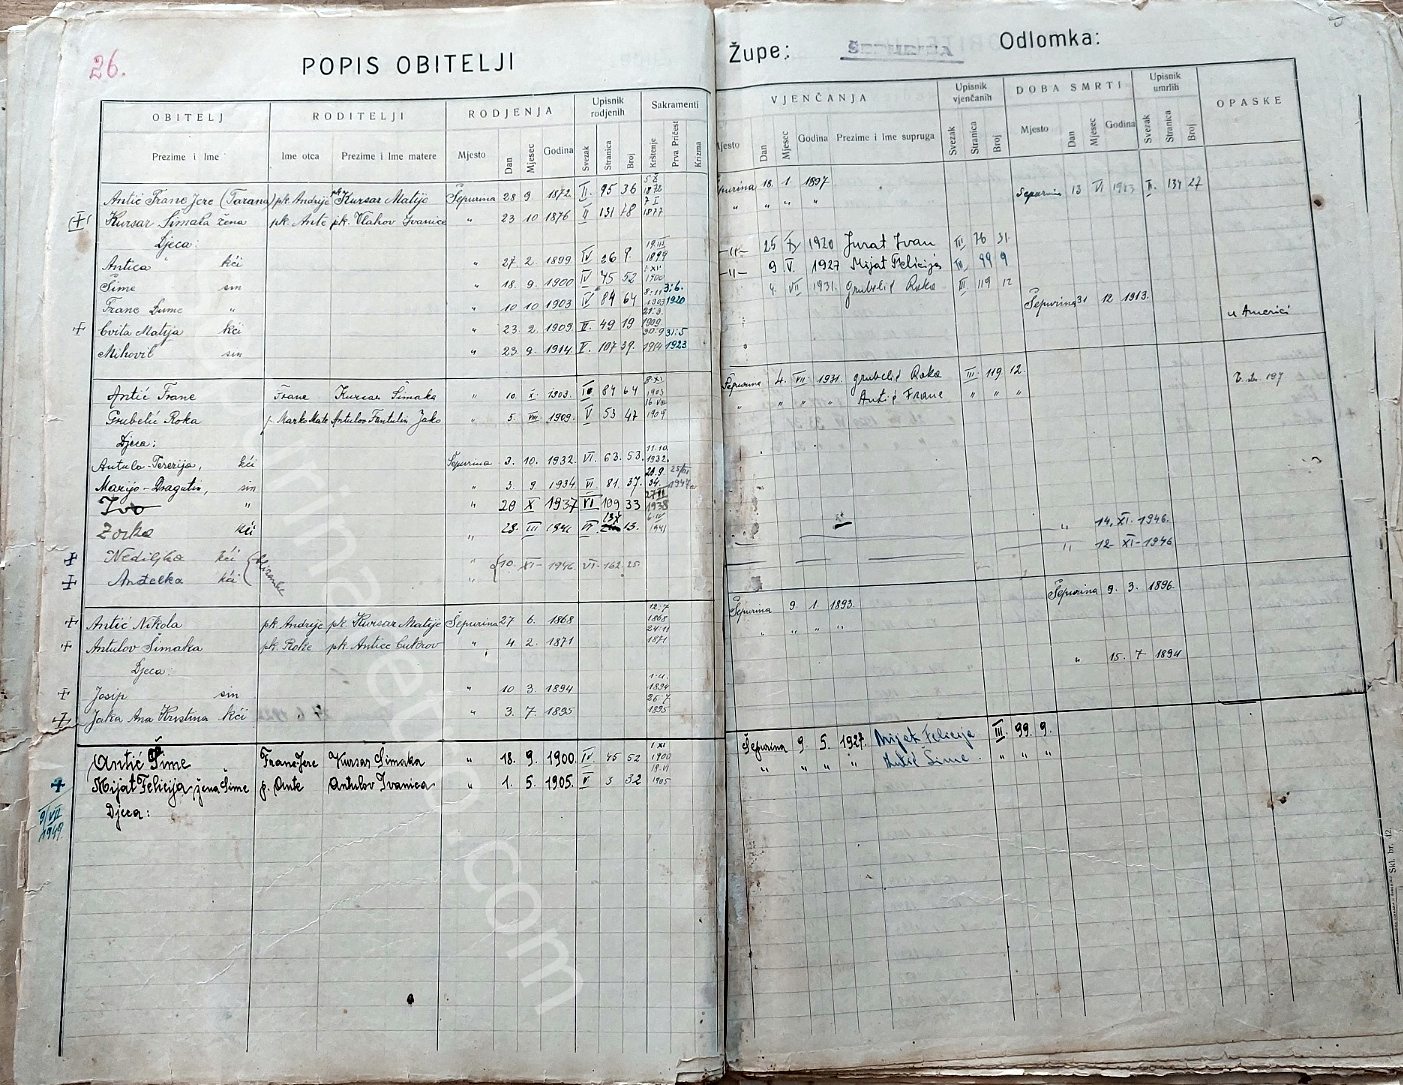 26.
POPIS OBITELJI
Župe: ŠEPURINA Odlomka:
OBITELJ RODITELJI RODJENJA Upisnik rodjenih Sakramenti
Prezime i Ime Ime otca Prezime i Ime matere Mjesto Dan Mjesec Godina Svezak Stranica Broj Krštenje Prva Pričest Krizma
VJENČANJA Upisnik vjenčanih DOBA SMRTI Upisnik umrlih OPASKE
Mjesto Dan Mjesec Godina Prezime i Ime supruga Svezak Stranica Broj Mjesto Dan Mjesec Godina Svezak Stranica Broj
Antić Frane Jere (Tarana) pk. Andrije Kursar Matije Šepurina 28 9. 1872. II. 95 36 1872 Šepurina 18. 1. 1897 Šepurina 13 VI II. 134 27
Kursar Šimaka žena pk. Ante pk. Vlahov Ivanice " 23 10 1876 II 131 78 1877 " " " "
Djeca:
Antica kći " 27 2. 1899 IV 26 9. 1899 25 1920 Jurat Ivan III 76 31
Šime sin " 18. 9. 1900 IV 45 52 1900 9 V. 1927 Mijat Felicija III 99 9
Frane Šime " " 10 10 1903 IV 84 64 1903 3. 6. 1920 4. VII 1931. Grubelić Roka III 119 12
Cvita Matija kći " 23. 2. 1909. V. 49 19 1909 Šepurina 31 12 1913.
Mihovil sin " 23 9. 1914. V. 107 39. 1914 31. 5 1923 u Americi
Antić Frane Frane Kursar Šimaka " 10. X. 1903. IV 84 64 1903 Šepurina 4. VII. 1931. Grubelić Roka III. 119 12.
Grubelić Roka Antulov Jako " 5. VIII 1909. V 53 47 1909 " " " " Antić Frane " " "
Djeca:
kći Šepurina 3. 10. 1932. VI. 63. 53. 11. 10. 1932.
Marijo-Dragutin, sin " 3. 9 1934 VI 81. 37. 34.
Ivo " " 20 X 1937 VI 109 33 1938
Zorka kći " 28. III 1941 VI 137 13. 1941
Nediljka kći " 10. XI- 1946 VI- 162 25. " 14. XI. 1946.
Anđelka kći " " 12- XI- 1946
Antić Nikola pk. Andrije pk. Kursar Matije Šepurina 27 6. 1868 12. 7 1868 Šepurina 9. 1. 1893. Šepurina 9. 3. 1896.
Antulov Šimaka pk. Roke pk. Antice Cukrov " 4 2. 1871 1871 " " " "
Djeca:
Josip sin " 10 3. 1894 1894 " 15. 7 1894
Jaka Ana Kristina kći " 3. 7. 1895 26. 7. 1895
Antić Šime Frane Jere Kursar Šimaka " 18. 9. 1900. IV 45 52 1. XI 1900 Šepurina 9. 5. 1927. Mijat Felicija III 99 9.
Mijat Felicija žena Šime p. Ante Antulov Ivanica " 1. 5. 1905. V 3 32 1905 " " " " Antić Šime " " "
Djeca:
9/VII 1949.
Skl. br. 12.